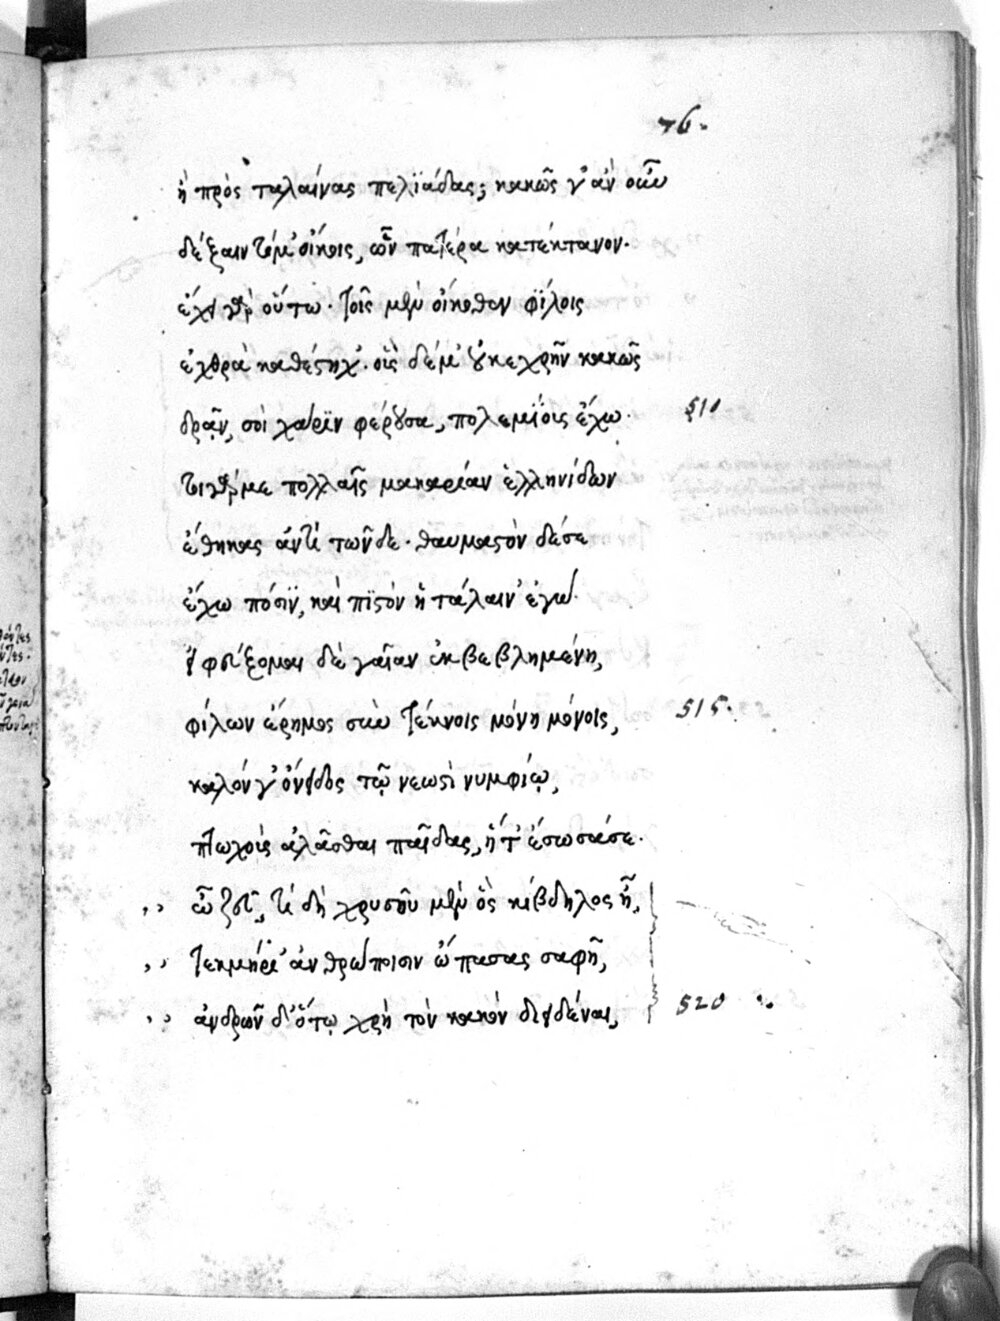 76.
ἢ πρὸς ταλαίνας πελϊάδας; κακῶς γ' ἂν οὖν
δέξαιντό μ' οἴκοις, ὧν πατέρα κατέκτανον.
ἔχει γὰρ οὕτω. τοῖς μὲν οἴκοθεν φίλοις
ἐχθρὰ καθέστηχ'. οἷς δέ μ' οὐκ ἐχρῆν κακῶς
δρᾷν, σοὶ χάρϊν φέρουσα, πολεμΐοις ἔχω. 510
τι γάρ με πολλαῖς μακαρίαν ἑλληνίδων
ἔθηκας ἀντὶ τῶνδε. θαυμαστὸν δέ σε
ἔχω πόσϊν, καὶ πϊστὸν ἡ τάλαιν' ἐγώ.
εἰ φεύξομαι δὲ γαῖαν ἐκβεβλημένη,
φίλων ἔρημος σὺν τέκνοις μόνη μόνοις, 515.
καλόν γ' ὄνειδος τῷ νεωστὶ νυμφίῳ,
πτωχοὺς ἀλᾶσθαι παῖδας, ἥ τ' ἔσωσά σε.
,, ὦ ζεῦ, τί δὴ χρυσοῦ μὲν ὃς κίβδηλος ᾖ,
,, τεκμήρι' ἀνθρώποισιν ὤπασας σαφῆ,
,, ἀνδρῶν δ' ὅτῳ χρὴ τὸν κακὸν διειδέναι, 520